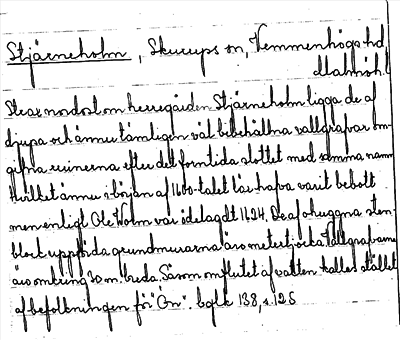 Stjärneholm, Skurups sn, Vemmenhögs hd,
Malmöh. l.
Strax nordost om herregården Stjärneholm ligga de af
djupa och ännu tämligen väl bibehållna vallgrafvar om-
gifna ruinerna efter det forntida slottet med samma namn
hvilket ännu i början af 1600-talet lär hafva varit bebott
men enligt Ole Worm var ödelagdt 1624. De af ohuggna sten-
block uppförda grundmurarna äro metertjocka. Vallgrafvarne
äro omkring 30 m. breda. Såsom omflutet af vatten kallas stället
af befolkningen för "Ön". 138, s. 125